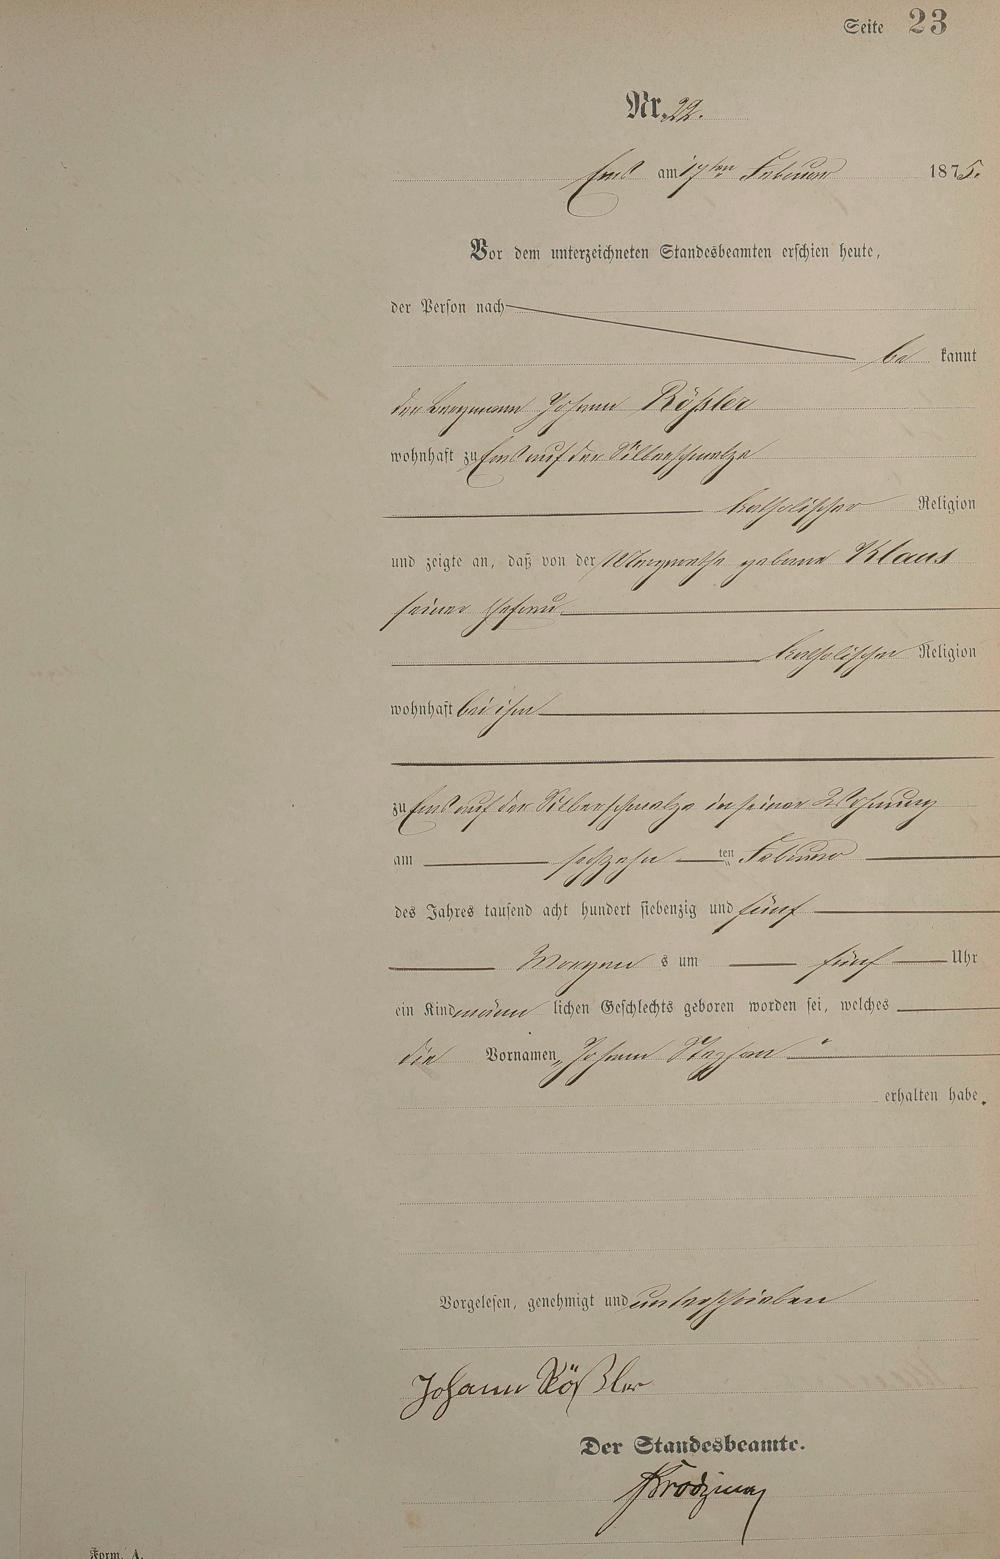 Seite 23
Nr. 22.
Ems am 17ten Februar 1875.
Vor dem unterzeichneten Standesbeamten erschien heute,
der Person nach
be kannt
der Bergmann Johann Rößler
wohnhaft zu Ems auf der Silberschmelze
katholischer Religion
und zeigte an, daß von der Margarethe geborne Klaus
seiner Ehefrau
katholischer Religion
wohnhaft bei ihm
zu Ems auf der Silberschmelze in seiner Wohnung
am sechzehn ten Februar
des Jahres tausend acht hundert siebenzig und fünf
Morgen s um fünf Uhr
ein Kind männ lichen Geschlechts geboren worden sei, welches
die Vornamen „Johann Stephan"
erhalten habe.
Vorgelesen, genehmigt und unterschrieben
Johann Rößler
Der Standesbeamte.
Form. A.